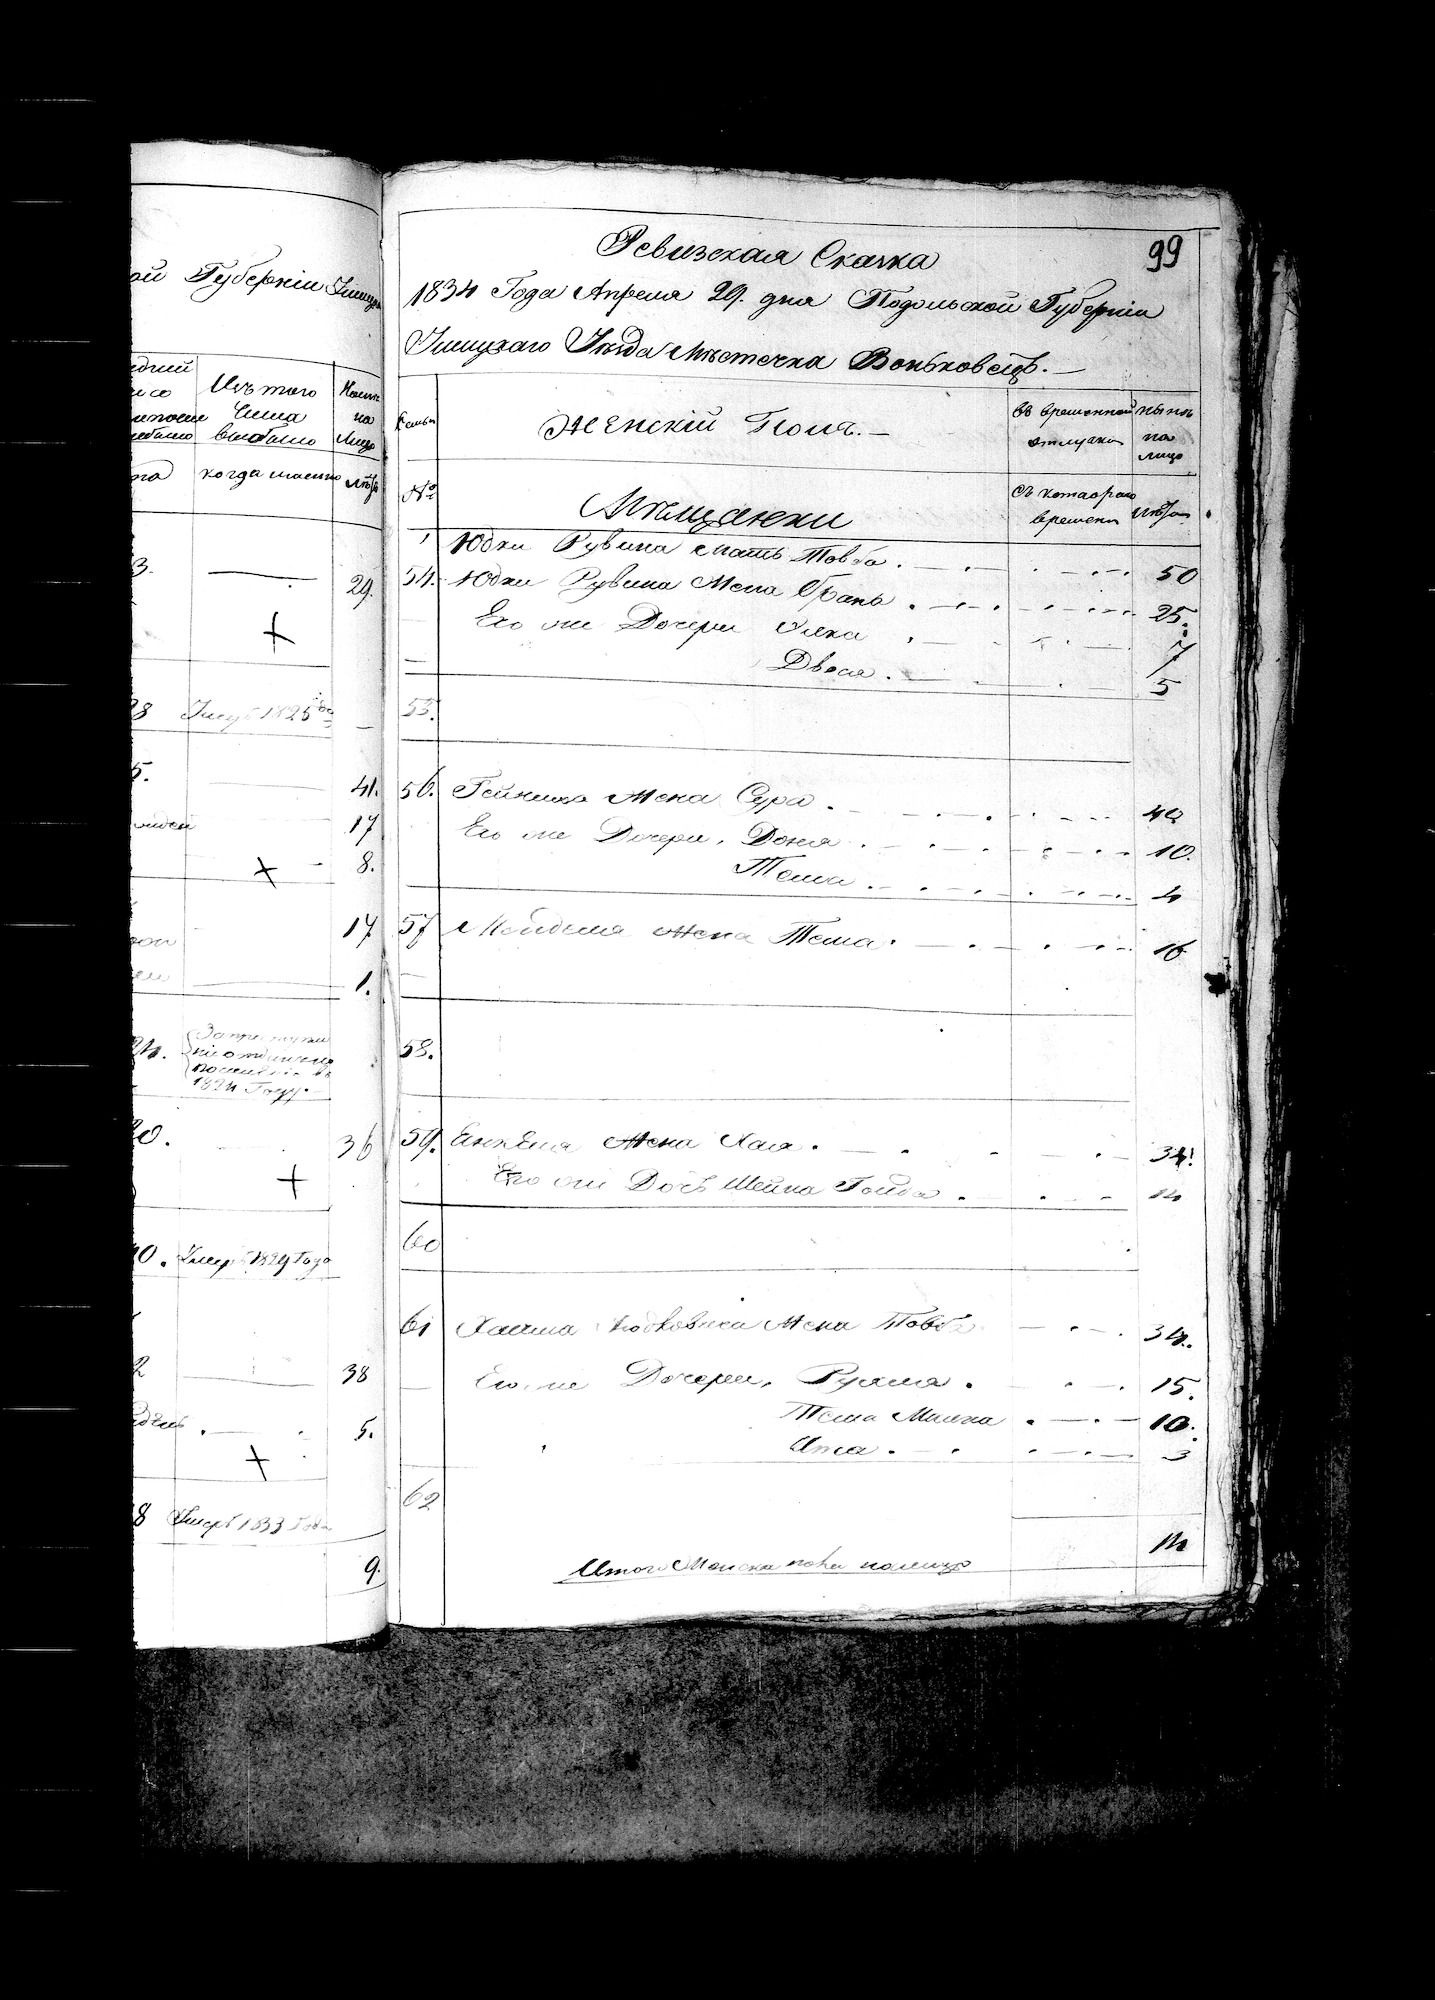 ой Губерніи Ушицк
Изъ того
числа
выбыло
на
лицо
когда именно
лѣта
3.
29.
28 Умеръ 1825 го
5.
41.
17
8.
17
1.
24.
1824 Году.
20.
36
40. Умеръ 1829 Года
2
38
5.
8 Умеръ 1833 Года
9.
99
Ревизская Сказка
1834 Года Апреля 29. дня Подольской Губерніи
Ушицкаго Уѣзда Мѣстечка Воньковецъ.
Семьи
Женскій Полъ.
въ временной
отлучки
нынѣ
на
лицо
№
Мѣщанки
съ котораго
времени
лѣта
Юдки Рувина мать Товба 50
54. Юдки Рувина Жена Брана 25.
Его же Дочери 7
Двося 5
55.
56. Жена Сура 40
Его же Дочери, Доня 10.
Тема 4
57 Жена Тема 16
58.
59. Янкеля Жена Хая 34
Его же Дочь Шейна Голда 14
60
61 Хаима Жена Товба 34.
Его же Дочери, Рухля 15.
Тема Малка 10.
Ита 3
62
Итого Женска пола налицо 14